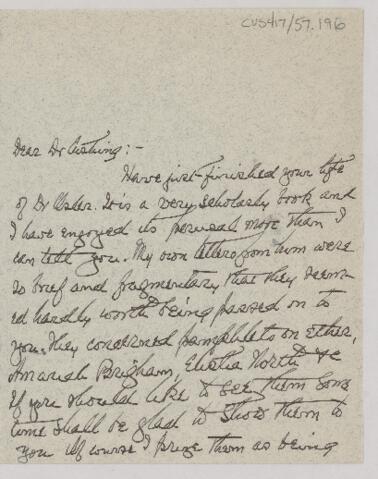 CUS417/57.196
Dear Dr Cushing:-
Have just finished your life
of Dr Osler. It is a very scholarly book and
I have enjoyed its perusal more than I
can tell you. My own letters from him were
so brief and fragmentary that they seem-
ed hardly worth being passed on to
you. They concerned pamphlets on Ether,
Amariah Brigham, Elisha North &c
If you should like to see them some
time shall be glad to show them to
you. Of course I prize them as being